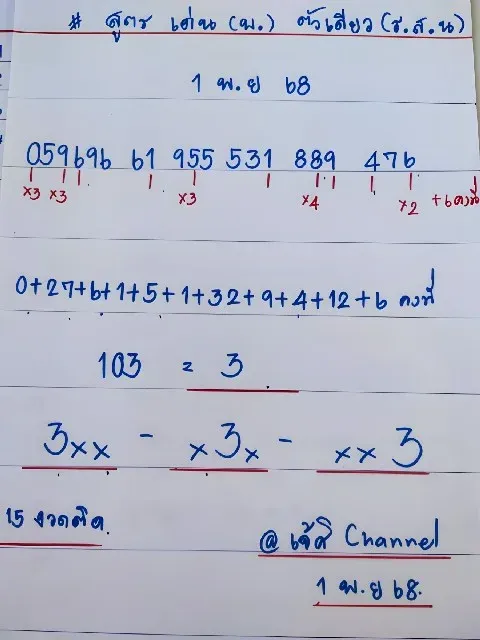 # สูตร เด่น (พ.) ตัวเดียว (ร.ส.น)
1 พ.ย 68
059696 61 955 531 889 476
x3 x3 x3 x4 x2 +6 คงที่
0+27+6+1+5+1+32+9+4+12+6 คงที่
103 = 3
3xx - x3x - xx3
15 งวดติด.
@ เจ้ศิ Channel
1 พ.ย 68.